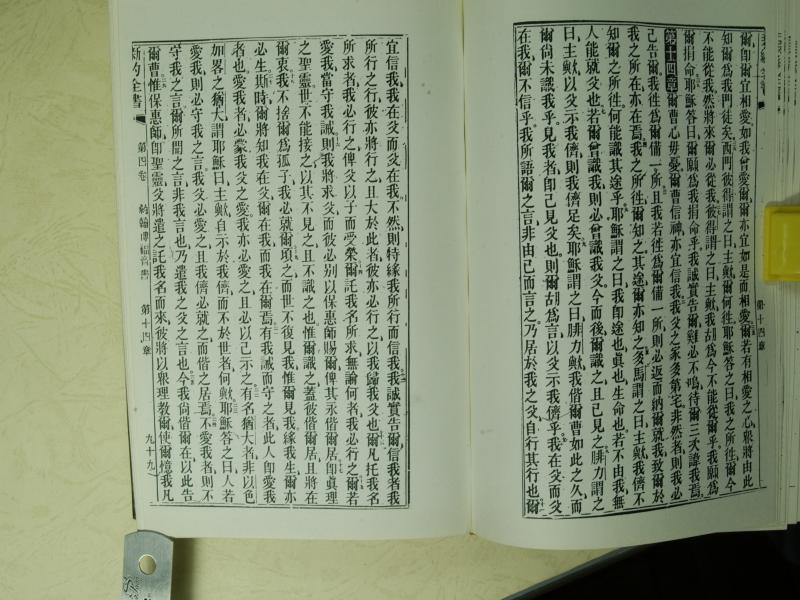 爾卽爾宜相愛如我曾愛爾爾亦宜如是而相愛爾若有相愛之心衆將由此
知爾爲我門徒矣西門彼得謂之曰主歟爾何往耶穌答之曰我之所往爾今
不能從我然將來爾必從我彼得謂之曰主歟我胡爲今不能從爾乎我願爲
爾捐命耶穌答曰爾願爲我捐命乎我誠實告爾雞必不鳴待爾三次諱我焉
第十四章爾曹心毋憂爾曹信神亦宜信我我父之家多第宅非然者則我必
己告爾我往爲爾備一所且我若往爲爾備一所則必返而納爾就我致爾於
我之所在亦在焉我之所往爾知之其途爾亦知之多馬謂之曰主歟我儕不
知爾之所往何能識其途乎耶穌謂之曰我卽途也眞也生命也若不由我無
人能就父也若爾曾識我則必曾識我父今而後爾識之且己見之腓力謂之
曰主歟以父示我儕則我儕足矣耶穌謂之曰腓力歟我偕爾曹如此之久而
爾尚未識我乎見我者卽己見父也則爾胡爲言以父示我儕乎我在父而父
在我爾不信乎我所語爾之言非由己而言之乃居於我之父自行其行也爾
第十四章
宜信我我在父而父在我不然則特緣我所行而信我我誠實告爾信我者我
所行之行彼亦將行之且大於此者彼亦必行之以我歸我父也爾凡托我名
所求者我必行之俾父以子而受榮爾託我名所求無論何者我必行之爾若
愛我當守我誡則我將求父而彼必别以保惠師賜爾俾其永偕爾居卽眞理
之聖靈世不能接之以其不見之且不識之也惟爾識之蓋彼偕爾居且將在
爾衷我不捨爾爲孤子我必就爾頃之而世不復見我惟爾見我緣我生爾亦
必生斯時爾將知我在父爾在我而我在爾焉有我誡而守之者此人卽愛我
者也愛我者必蒙我父之愛我亦必愛之且必以己示之有名猶大者非以色
如畧之猶大謂耶穌曰主歟自示於我儕而不於世者何歟耶穌答之曰人若
愛我則必守我之言我父必愛之且我儕必就之而偕之居焉不愛我者則不
守我之言爾所聞之言非我言也乃遣我之父之言也今我尚偕爾在以此告
爾曹惟保惠師卽聖靈父將遣之託我名而來彼將以衆理教爾使爾憶我凡
新約全書 第四卷 約翰傳福音書 第十四章 九十九